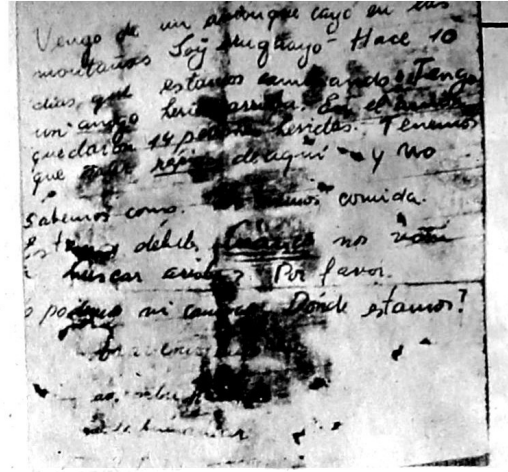 Vengo de un avion que cayó en las
montañas Soy uruguayo Hace 10
dias que estamos caminando. Tengo
un amigo herido arriba. En el avion
quedaron 14 personas heridas. Tenemos
que salir rápido de aqui y no
sabemos como. No tenemos comida.
Estamos débiles. Cuando nos van
a buscar arriba? Por favor.
No podemos ni caminar. Donde estamos?